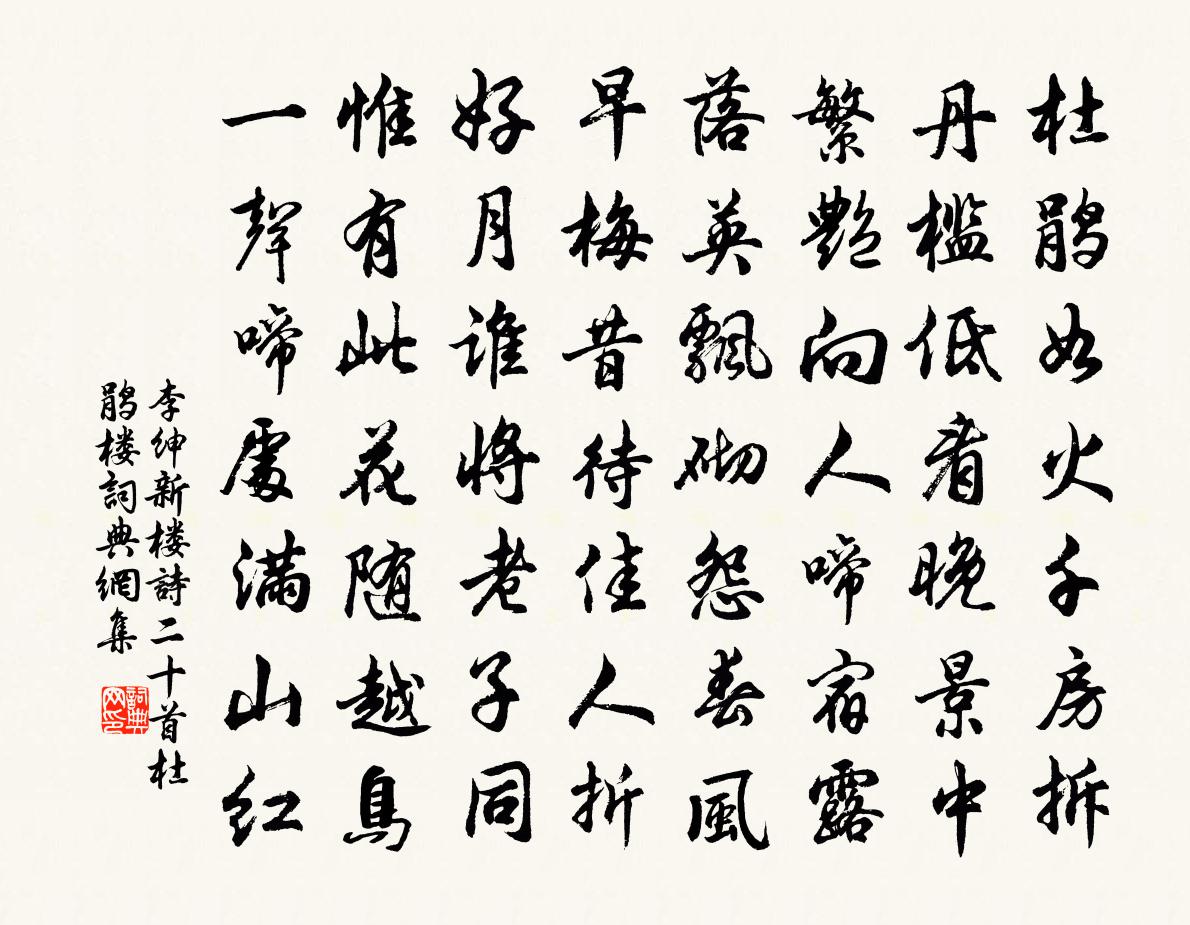 杜鹃如火千房拆
丹檻低看晚景中
繁艷向人啼宿露
落英飄砌怨春風
早梅昔待佳人折
好月誰將老子同
惟有此花随越鳥
一聲啼處满山红
李绅新楼詩二十首杜
鹃楼詞典網集
詞典网印